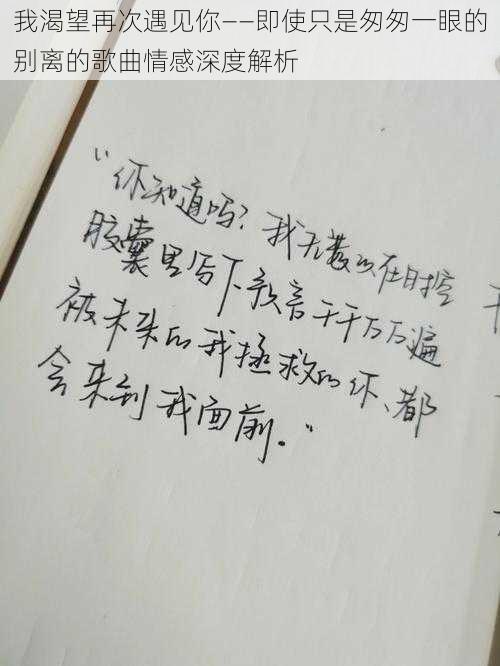 我渴望再次遇见你——即使只是匆匆一眼的
别离的歌曲情感深度解析
“你知道吗？我无数次在时空
胶囊里写下预言千千万万遍
被未来的我拯救的你、都
会来到我面前.”